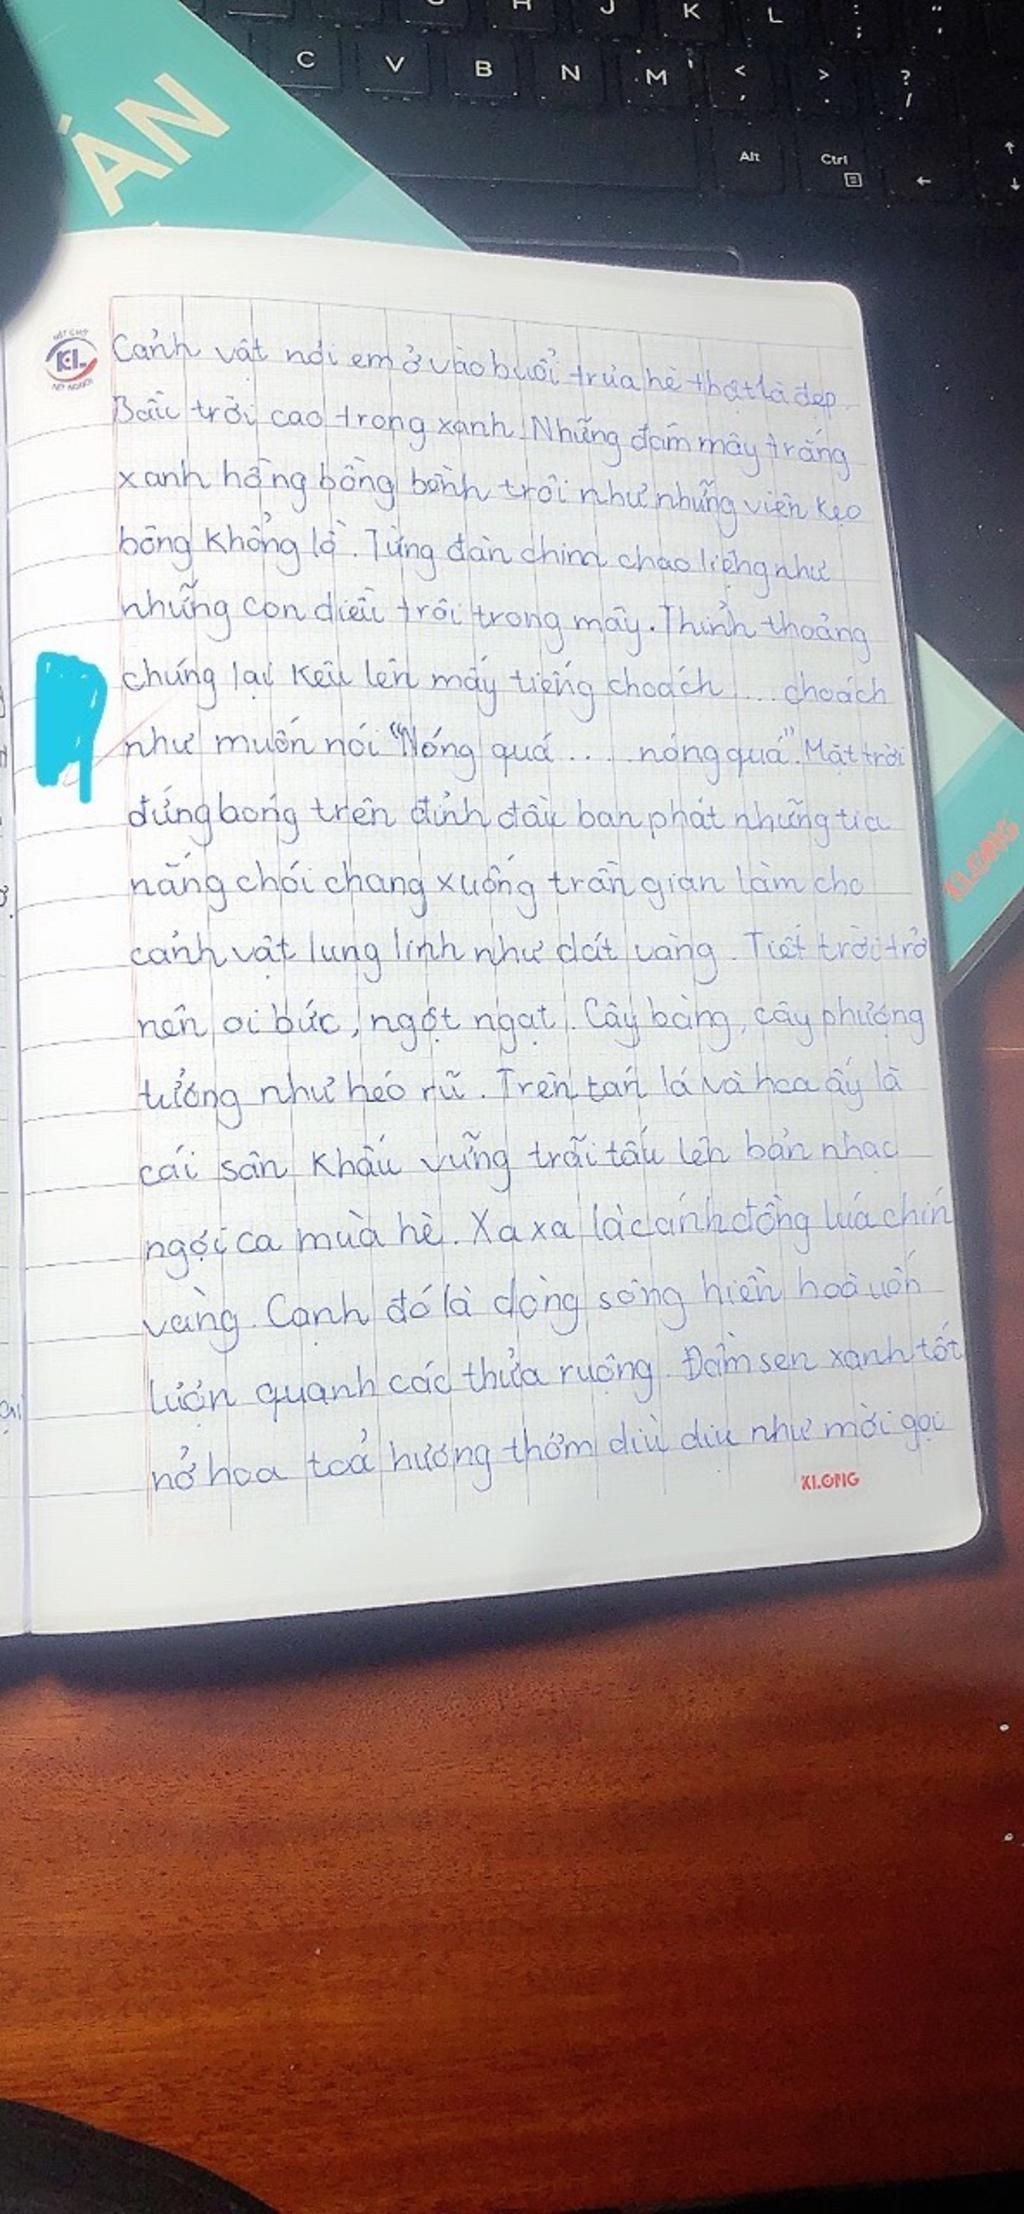 H J K L ; "
C V B N M < , > . ? /
Alt Ctrl
ÁN
NÉT CHỮ
KL
NẾT NGƯỜI
Cảnh vật nơi em ở vào buổi trưa hè thật là đẹp.
Bầu trời cao trong xanh. Những đám mây trắng
xanh hồng bồng bềnh trôi như những viên kẹo
bông khổng lồ. Từng đàn chim chao liệng như
những con diều trôi trong mây. Thỉnh thoảng
chúng lại kêu lên mấy tiếng choách ... choách
như muốn nói "Nóng quá ... nóng quá". Mặt trời
đứng bóng trên đỉnh đầu ban phát những tia
nắng chói chang xuống trần gian làm cho
cảnh vật lung linh như dát vàng. Tiết trời trở
nên oi bức, ngột ngạt. Cây bàng, cây phượng
tưởng như héo rũ. Trên tán lá và hoa ấy là
cái sân khấu vững trãi tấu lên bản nhạc
ngợi ca mùa hè. Xa xa là cánh đồng lúa chín
vàng. Cạnh đó là dòng sông hiền hoà uốn
lượn quanh các thửa ruộng. Đầm sen xanh tốt
nở hoa toả hương thơm dìu dịu như mời gọi
KLONG
KLONG